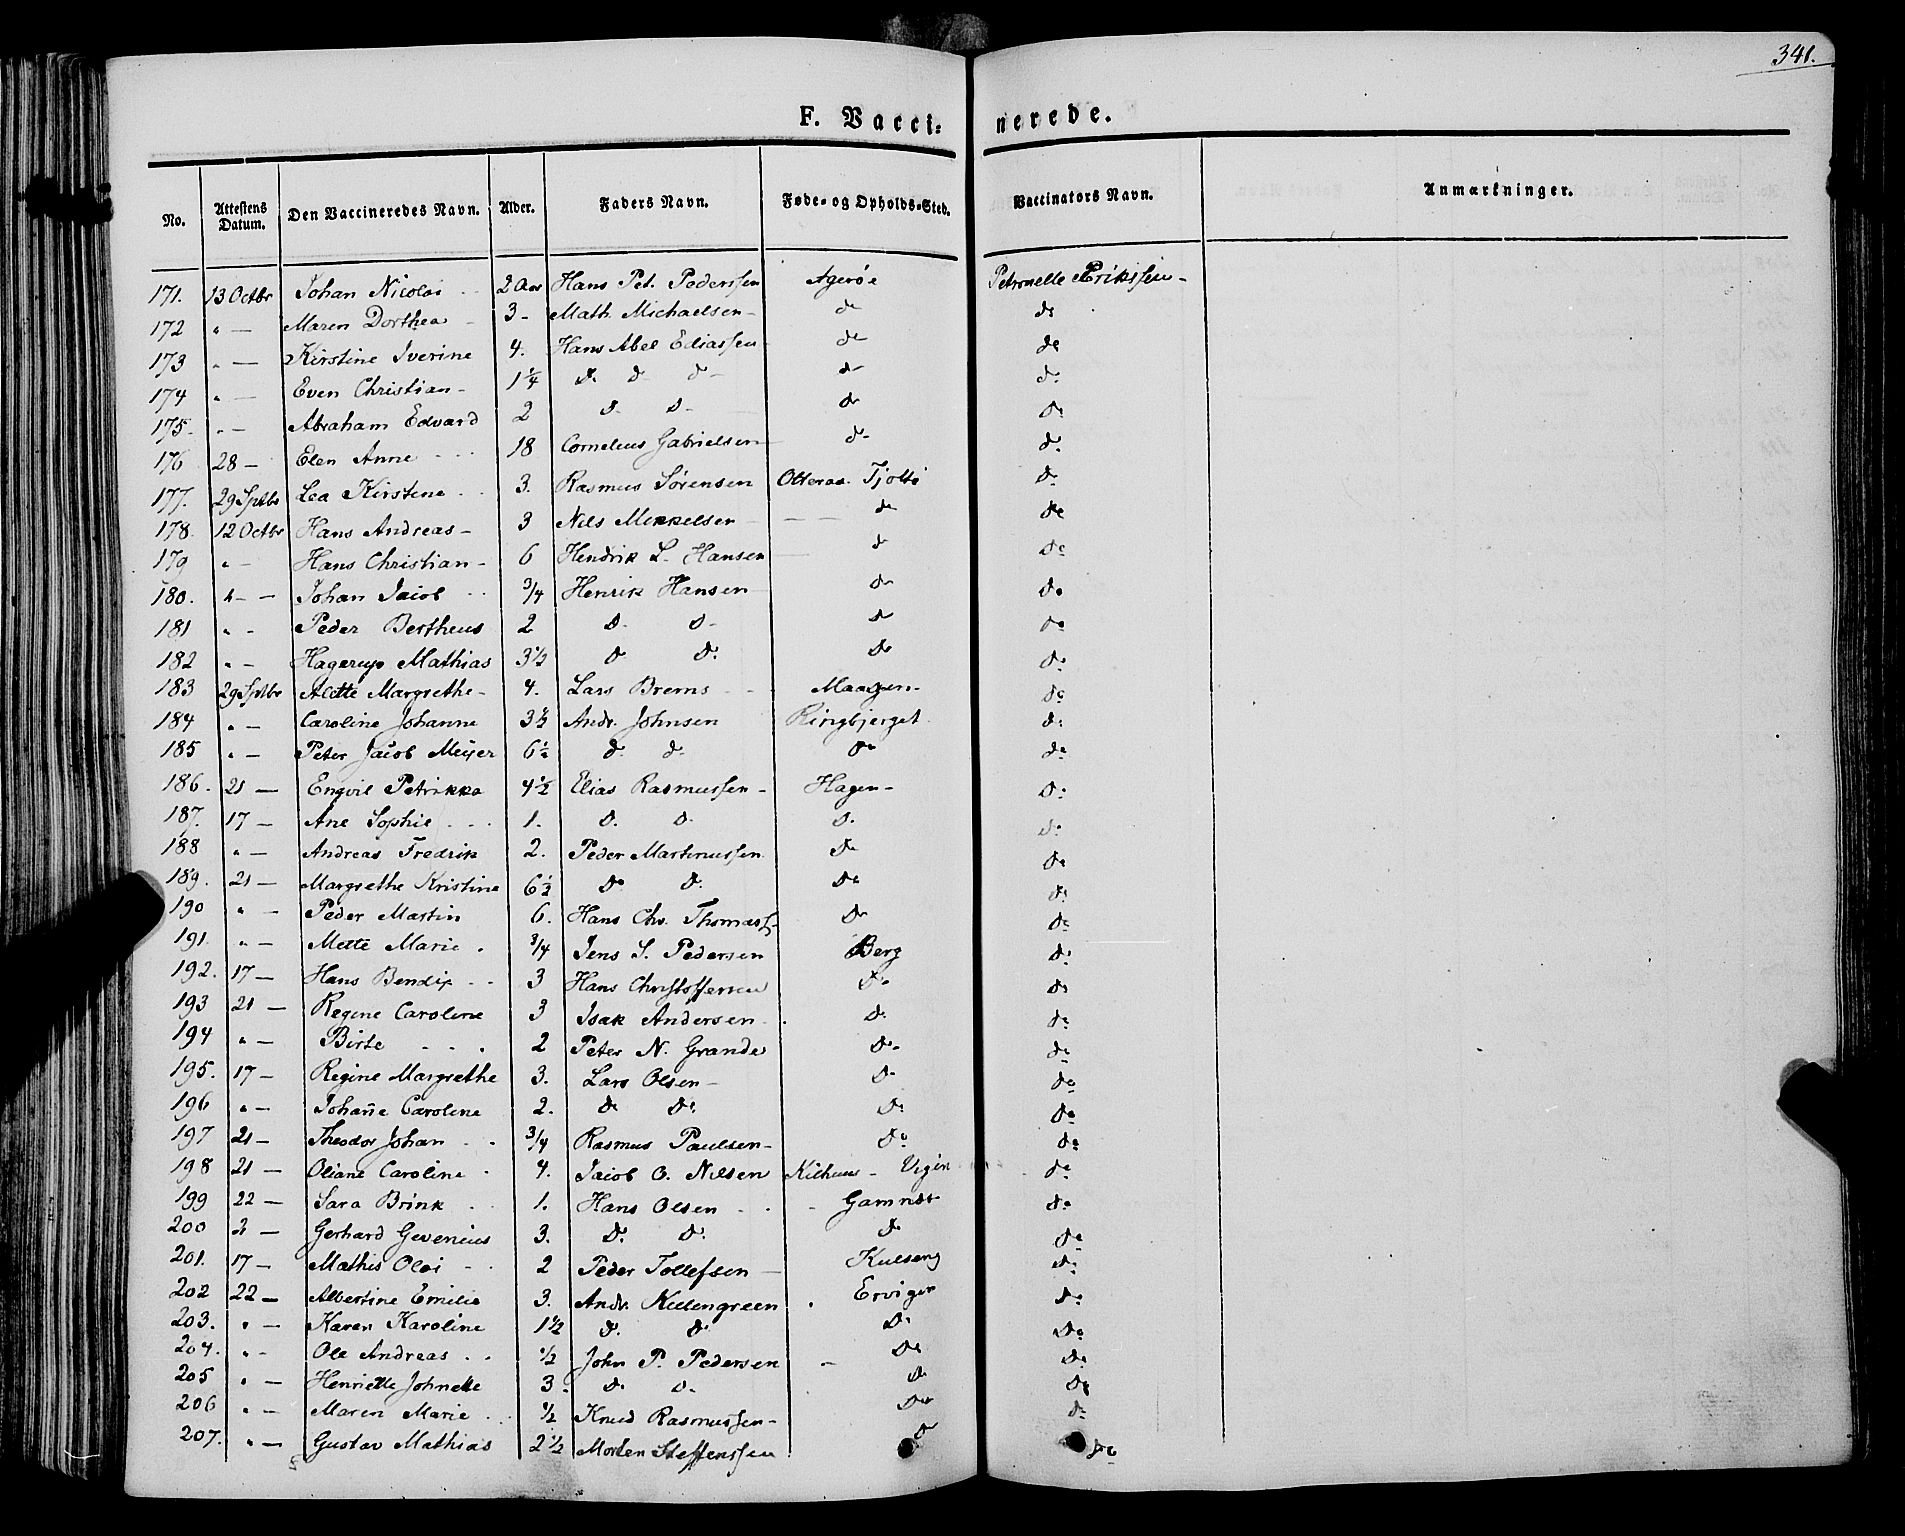 341.
F. Vacci- nerede.
No. Attestens Datum. Den Vaccineredes Navn. Alder. Faders Navn. Føde- og Opholds-Sted. Vaccinators Navn. Anmærkninger.
171. 13 Octbr Johan Nicolai - - 2 Aar Hans Pet. Pederssen Agerøe Petronelle Erikssen -
172 " — Maren Dorthea - 3 - Math. Michaelsen - do do
173 " — Kirstine Iverine 4. Hans Abel Eliassen do do
174 " — Even Christian - 1 1/4 do do do - do do
175. " — Abraham Edvard 2 do do - do do
176 28 — Elen Anne - - - 18 Cornelius Gabrielsen do do
177. 29 Sptbr Lea Kirstine - - 3. Rasmus Sørensen Olteraa. Tjøttø do
178. 12 Octbr Hans Andreas - 3 Nils Mikkelsen — — do do
179 " — Hans Christian - 6 Hendrik L. Hansen — do do
180. " — Johan Jacob - - 3/4 Henrik Hansen do do
181 " — Peder Bertheus 2 do do do do
182 " — Hagerup Mathias 3 1/2 do do do do
183 29 Sptbr Alette Margrethe - 4. Lars Brems - - Maagen - do
184 " — Caroline Johanne 3 1/2 Andr. Johnsen Ringbjerget do
185 " — Peter Jacob Meijer 6 1/2 do do do do
186. 21 — Engvil Petrikka 4 1/2 Elias Rasmussen - Hagen - do
187. 17 — Ane Sophie - - - 1. do do do do
188 " — Andreas Fredrik 2. Peder Martinussen do do
189. 21 — Margrethe Kristine 6 1/2 do do do do
190 " — Peder Martin 6. Hans Chr. Thomass. do do
191. " — Mette Marie . 3/4 Jens S. Pedersen Berg do
192. 17 — Hans Bendix - - 3 Hans Christoffersen do do
193 21 — Regine Caroline 3 Isak Andersen do do
194 " — Birte - - - 2 Peter N. Grande do do
195. 17 — Regine Margrethe 3. Lars Olsen - do do
196 " — Johañe Caroline 2. do do do do
197 21 — Theodor Johan - - 3/4 Rasmus Paulsen - do do
198 21 — Oliane Caroline - 4. Jacob O. Nilsen Kilhuus - Vigin do
199 22 — Sara Brink - - 1. Hans Olsen - - - Gamnæt do
200 2 — Gerhard Gevenius 3. do do do do
201. 17 — Mathis Olai - - 2 Peder Tollefsen — Kulseng do
202 22 — Albertine Emilie 3. Andr. Kildengreen . Ervigen do
203. " — Karen Karoline 1 1/2 do do do do
204. " - Ole Andreas . . 1/2 John P. Pedersen - do do
205 " — Henriette Johnette 3. do do do do
206 " — Maren Marie . . 1/2 Knud Rasmussen - do do
207. " — Gustav Mathias 2 1/2 Morten Steffenssen do do